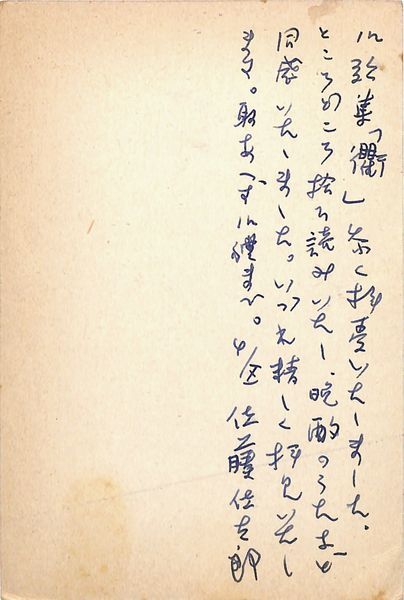 御歌集「衢」忝く拝受いたしました。
ところどころ拾ひ読みいたし、晩酌のうたなど
同感いたしました。いづれ精しく拝見いたし
ます。取あへず御礼まで。佐藤佐太郎